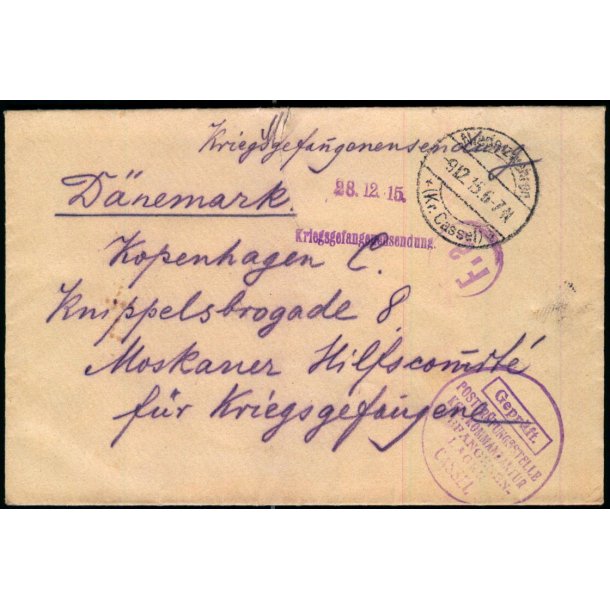 Kriegsgefangenensendung
Niederzwehren
-9.12.15.6-7N
* (Kr. Cassel)
28.12.15.
Dänemark.
Kriegsgefangenensendung.
F.a
Kopenhagen C.
Knippelsbrogade 8
Moskauer Hilfscomité
für Kriegsgefangene
Geprüft.
POSTPRÜFUNGSSTELLE
KOMMANDANTUR
GEFANGENEN-
LAGER
CASSEL.